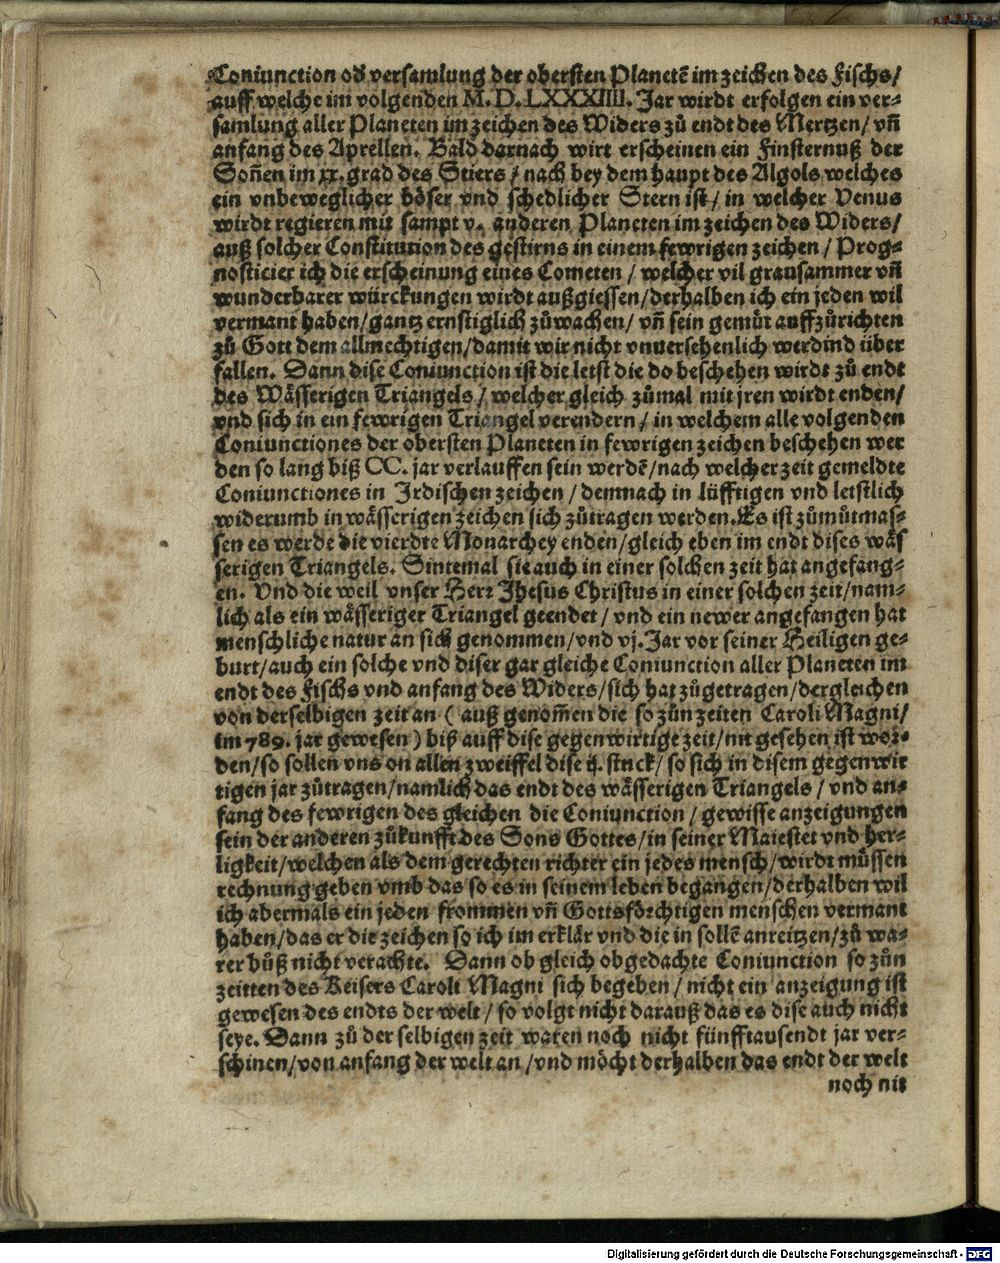 Coniunction od̕ versamlung der obersten Planetē im zeichen des Fischs/
auff welche im volgenden M.D.LXXXIIII. Jar wirdt erfolgen ein ver⸗
samlung aller Planeten im zeichen des Widers zů endt des Mertzen/ vn̄
anfang des Aprellen. Bald darnach wirt erscheinen ein Finsternuß der
Son̄en im xx. grad des Stiers / nach bey dem haupt des Algols welches
ein vnbeweglicher böser vnd schedlicher Stern ist / in welcher Venus
wirdt regieren mit sampt v. anderen Planeten im zeichen des Widers/
auß solcher Constitution des gestirns in einem fewrigen zeichen / Prog⸗
nosticier ich die erscheinung eines Cometen / welcher vil grausammer vn̄
wunderbarer würckungen wirdt außgiessen/derhalben ich ein jeden wil
vermant haben/gantz ernstiglich zůwachen/ vn̄ sein gemůt auffzůrichten
zů Gott dem allmechtigen/damit wir nicht vnuersehenlich werdind über
fallen. Dann dise Coniunction ist die letst die do beschehen wirdt zů endt
des Wässerigen Triangels / welcher gleich zůmal mit jren wirdt enden/
vnd sich in ein fewrigen Triangel verendern / in welchem alle volgenden
Coniunctiones der obersten Planeten in fewrigen zeichen beschehen wer
den so lang biß CC. jar verlauffen sein werdē/nach welcher zeit gemeldte
Coniunctiones in Irdischen zeichen / demnach in lüfftigen vnd letstlich
widerumb in wässerigen zeichen sich zůtragen werden. Es ist zůmůtmas⸗
sen es werde die vierdte Monarchey enden/gleich eben im endt dises wäs
serigen Triangels. Sintemal sie auch in einer solchen zeit hat angefang⸗
en. Vnd die weil vnser Herr Jhesus Christus in einer solchen zeit/nam⸗
lich als ein wässeriger Triangel geendet / vnd ein newer angefangen hat
menschliche natur an sich genommen/vnd vj. Jar vor seiner Heiligen ge⸗
burt/auch ein solche vnd diser gar gleiche Coniunction aller Planeten im
endt des Fischs vnd anfang des Widers/sich hat zůgetragen/dergleichen
von derselbigen zeit an ( auß genom̄en die so zůn zeiten Caroli Magni/
im 789. jar gewesen ) biß auff dise gegenwirtige zeit/nit gesehen ist wor⸗
den/so sollen vns on allen zweiffel dise ij. stuck/ so sich in disem gegenwir
tigen jar zůtragen/namlich das endt des wässerigen Triangels / vnd an⸗
fang des fewrigen des gleichen die Coniunction / gewisse anzeigungen
sein der anderen zůkunfft des Sons Gottes/in seiner Maiestet vnd her⸗
ligkeit/welchen als dem gerechten richter ein jedes mensch/wirdt müssen
rechnung geben vmb das so es in seinem leben begangen/derhalben wil
ich abermals ein jeden frommen vn̄ Gottsförchtigen menschen vermant
haben/das er die zeichen so ich im erklär vnd die in sollē anreitzen/zů wa⸗
rer bůß nicht verachte. Dann ob gleich obgedachte Coniunction so zůn
zeitten des Keisers Caroli Magni sich begeben / nicht ein anzeigung ist
gewesen des endts der welt / so volgt nicht darauß das es dise auch nicht
seye. Dann zů der selbigen zeit waren noch nicht fünfftausendt jar ver⸗
schinen/von anfang der welt an /vnd möcht derhalben das endt der welt
noch nit
Digitalisierung gefördert durch die Deutsche Forschungsgemeinschaft - DFG